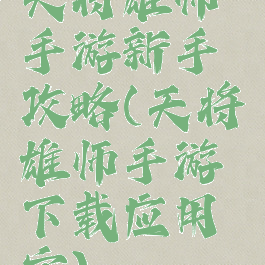 天将雄师
手游新手
攻略(天将
雄师手游
下载应用
宝)